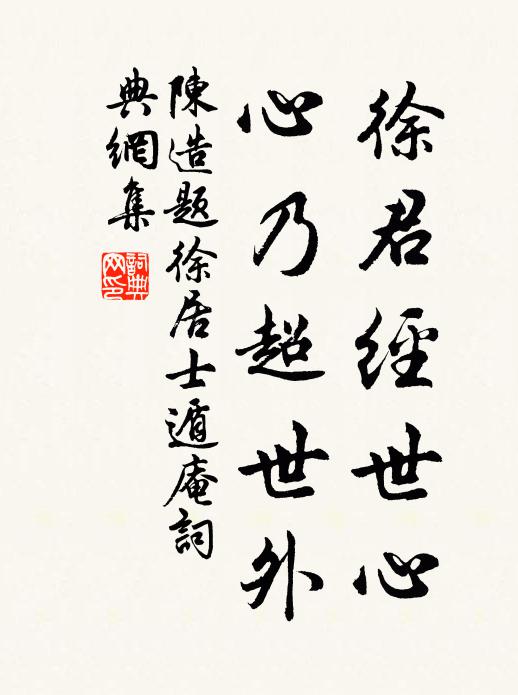 徐君經世心
心乃超世外
陳造題徐居士遁庵詞
典網集
詞典網印